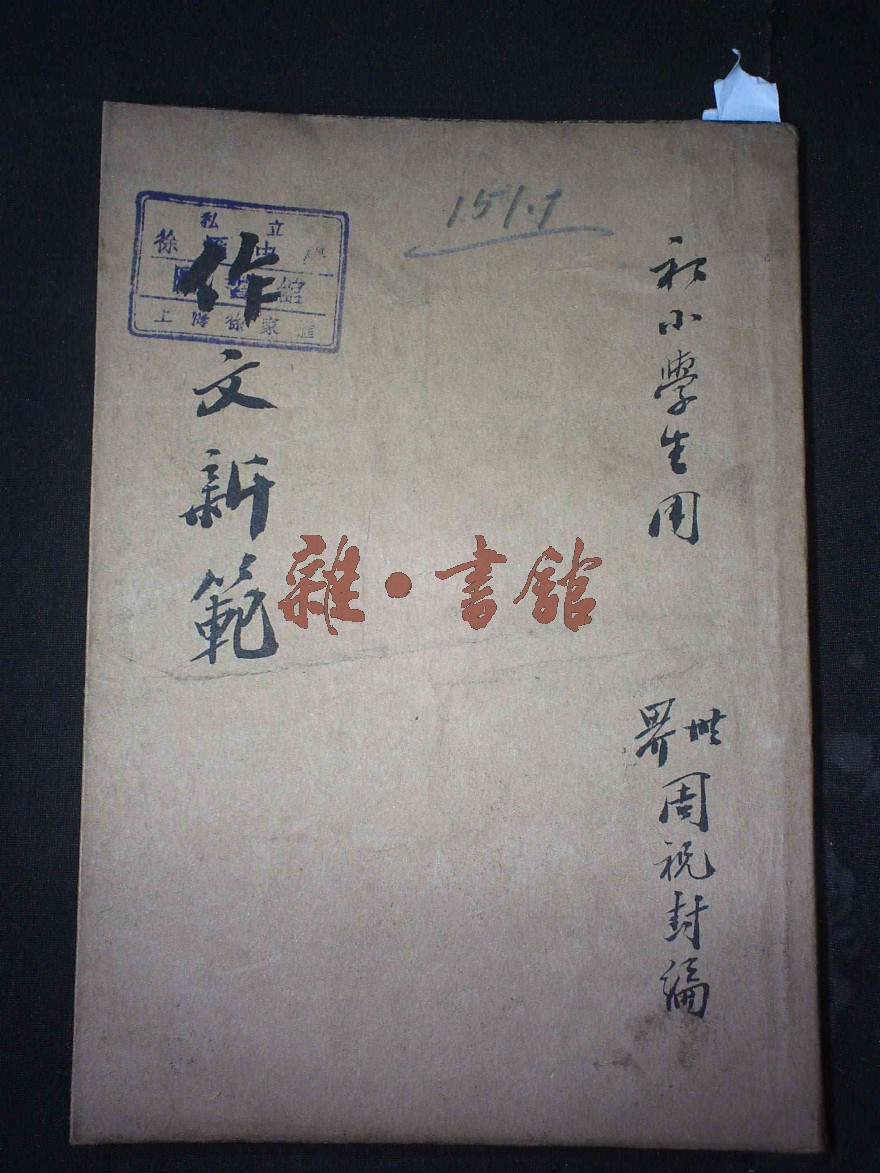 初小學生用
世界
周祝封編
151.1
作文新範
私立
徐匯中學
圖書館
上海徐家匯
雜·書館